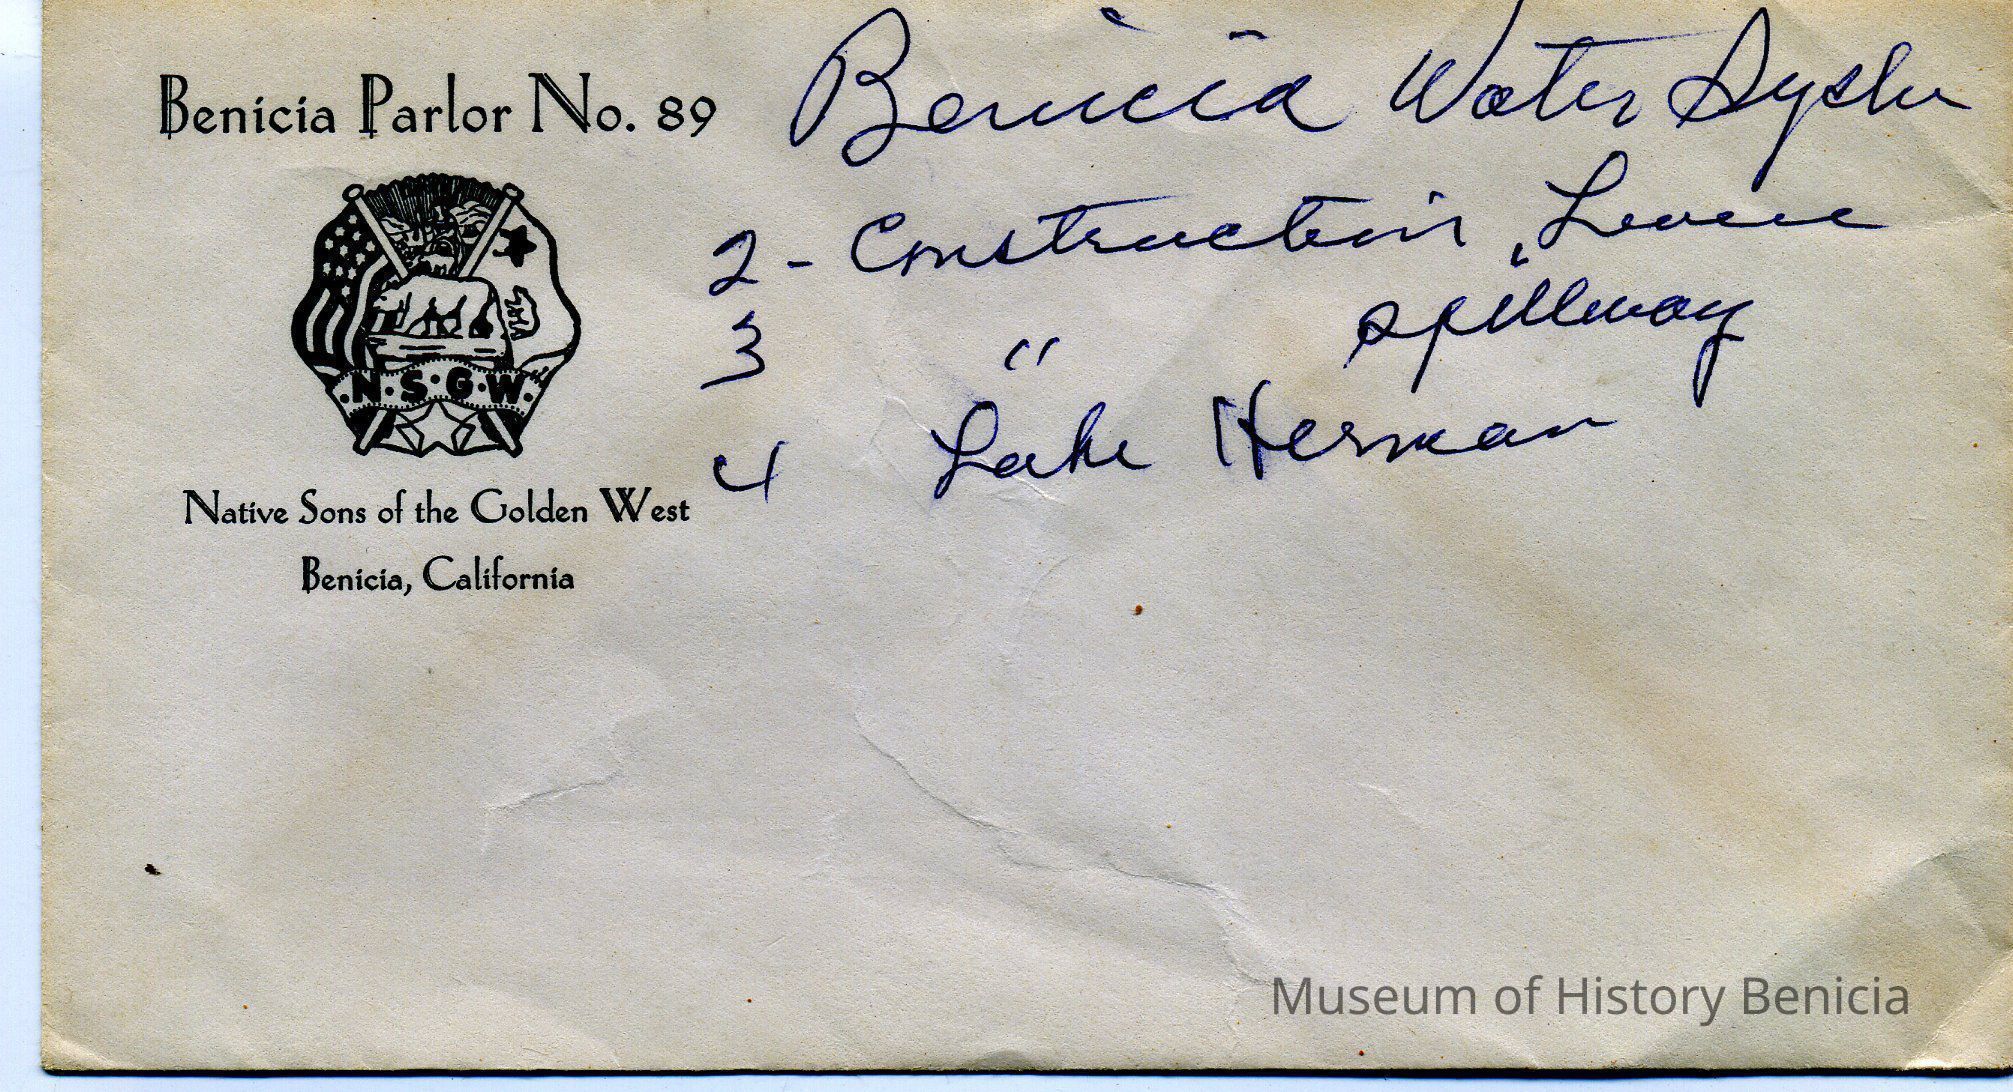 Benicia Parlor No. 89
N·S·G·W
Native Sons of the Golden West
Benicia, California
Benicia Water System
2 - Construction,
3 " spillway
4 Lake Herman
Museum of History Benicia